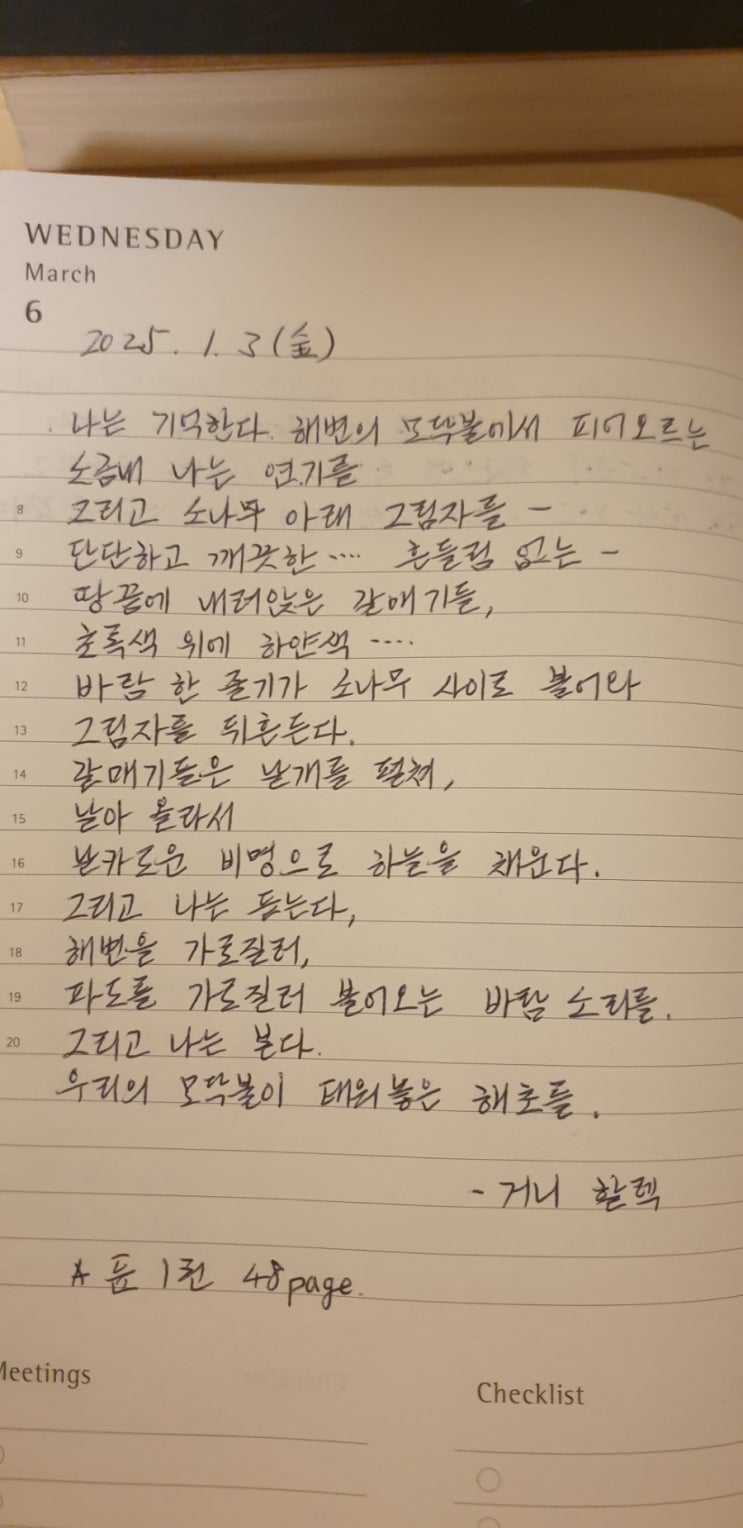 WEDNESDAY
March
6
2025. 1. 3 (金)
나는 기억한다. 해변의 모닥불에서 피어오르는
소금내 나는 연기를
8 그리고 소나무 아래 그림자를 -
9 단단하고 깨끗한 .... 흔들림 없는 -
10 땅끝에 내려앉은 갈매기들,
11 초록색 위에 하얀색 ....
12 바람 한 줄기가 소나무 사이로 불어와
13 그림자를 뒤흔든다.
14 갈매기들은 날개를 펼쳐,
15 날아 올라서
16 날카로운 비명으로 하늘을 채운다.
17 그리고 나는 듣는다,
18 해변을 가로질러,
19 파도를 가로질러 불어오는 바람 소리를.
20 그리고 나는 본다.
우리의 모닥불이 태워놓은 해초를.
- 거니 할렉
듄 1권 48page.
Meetings
Checklist